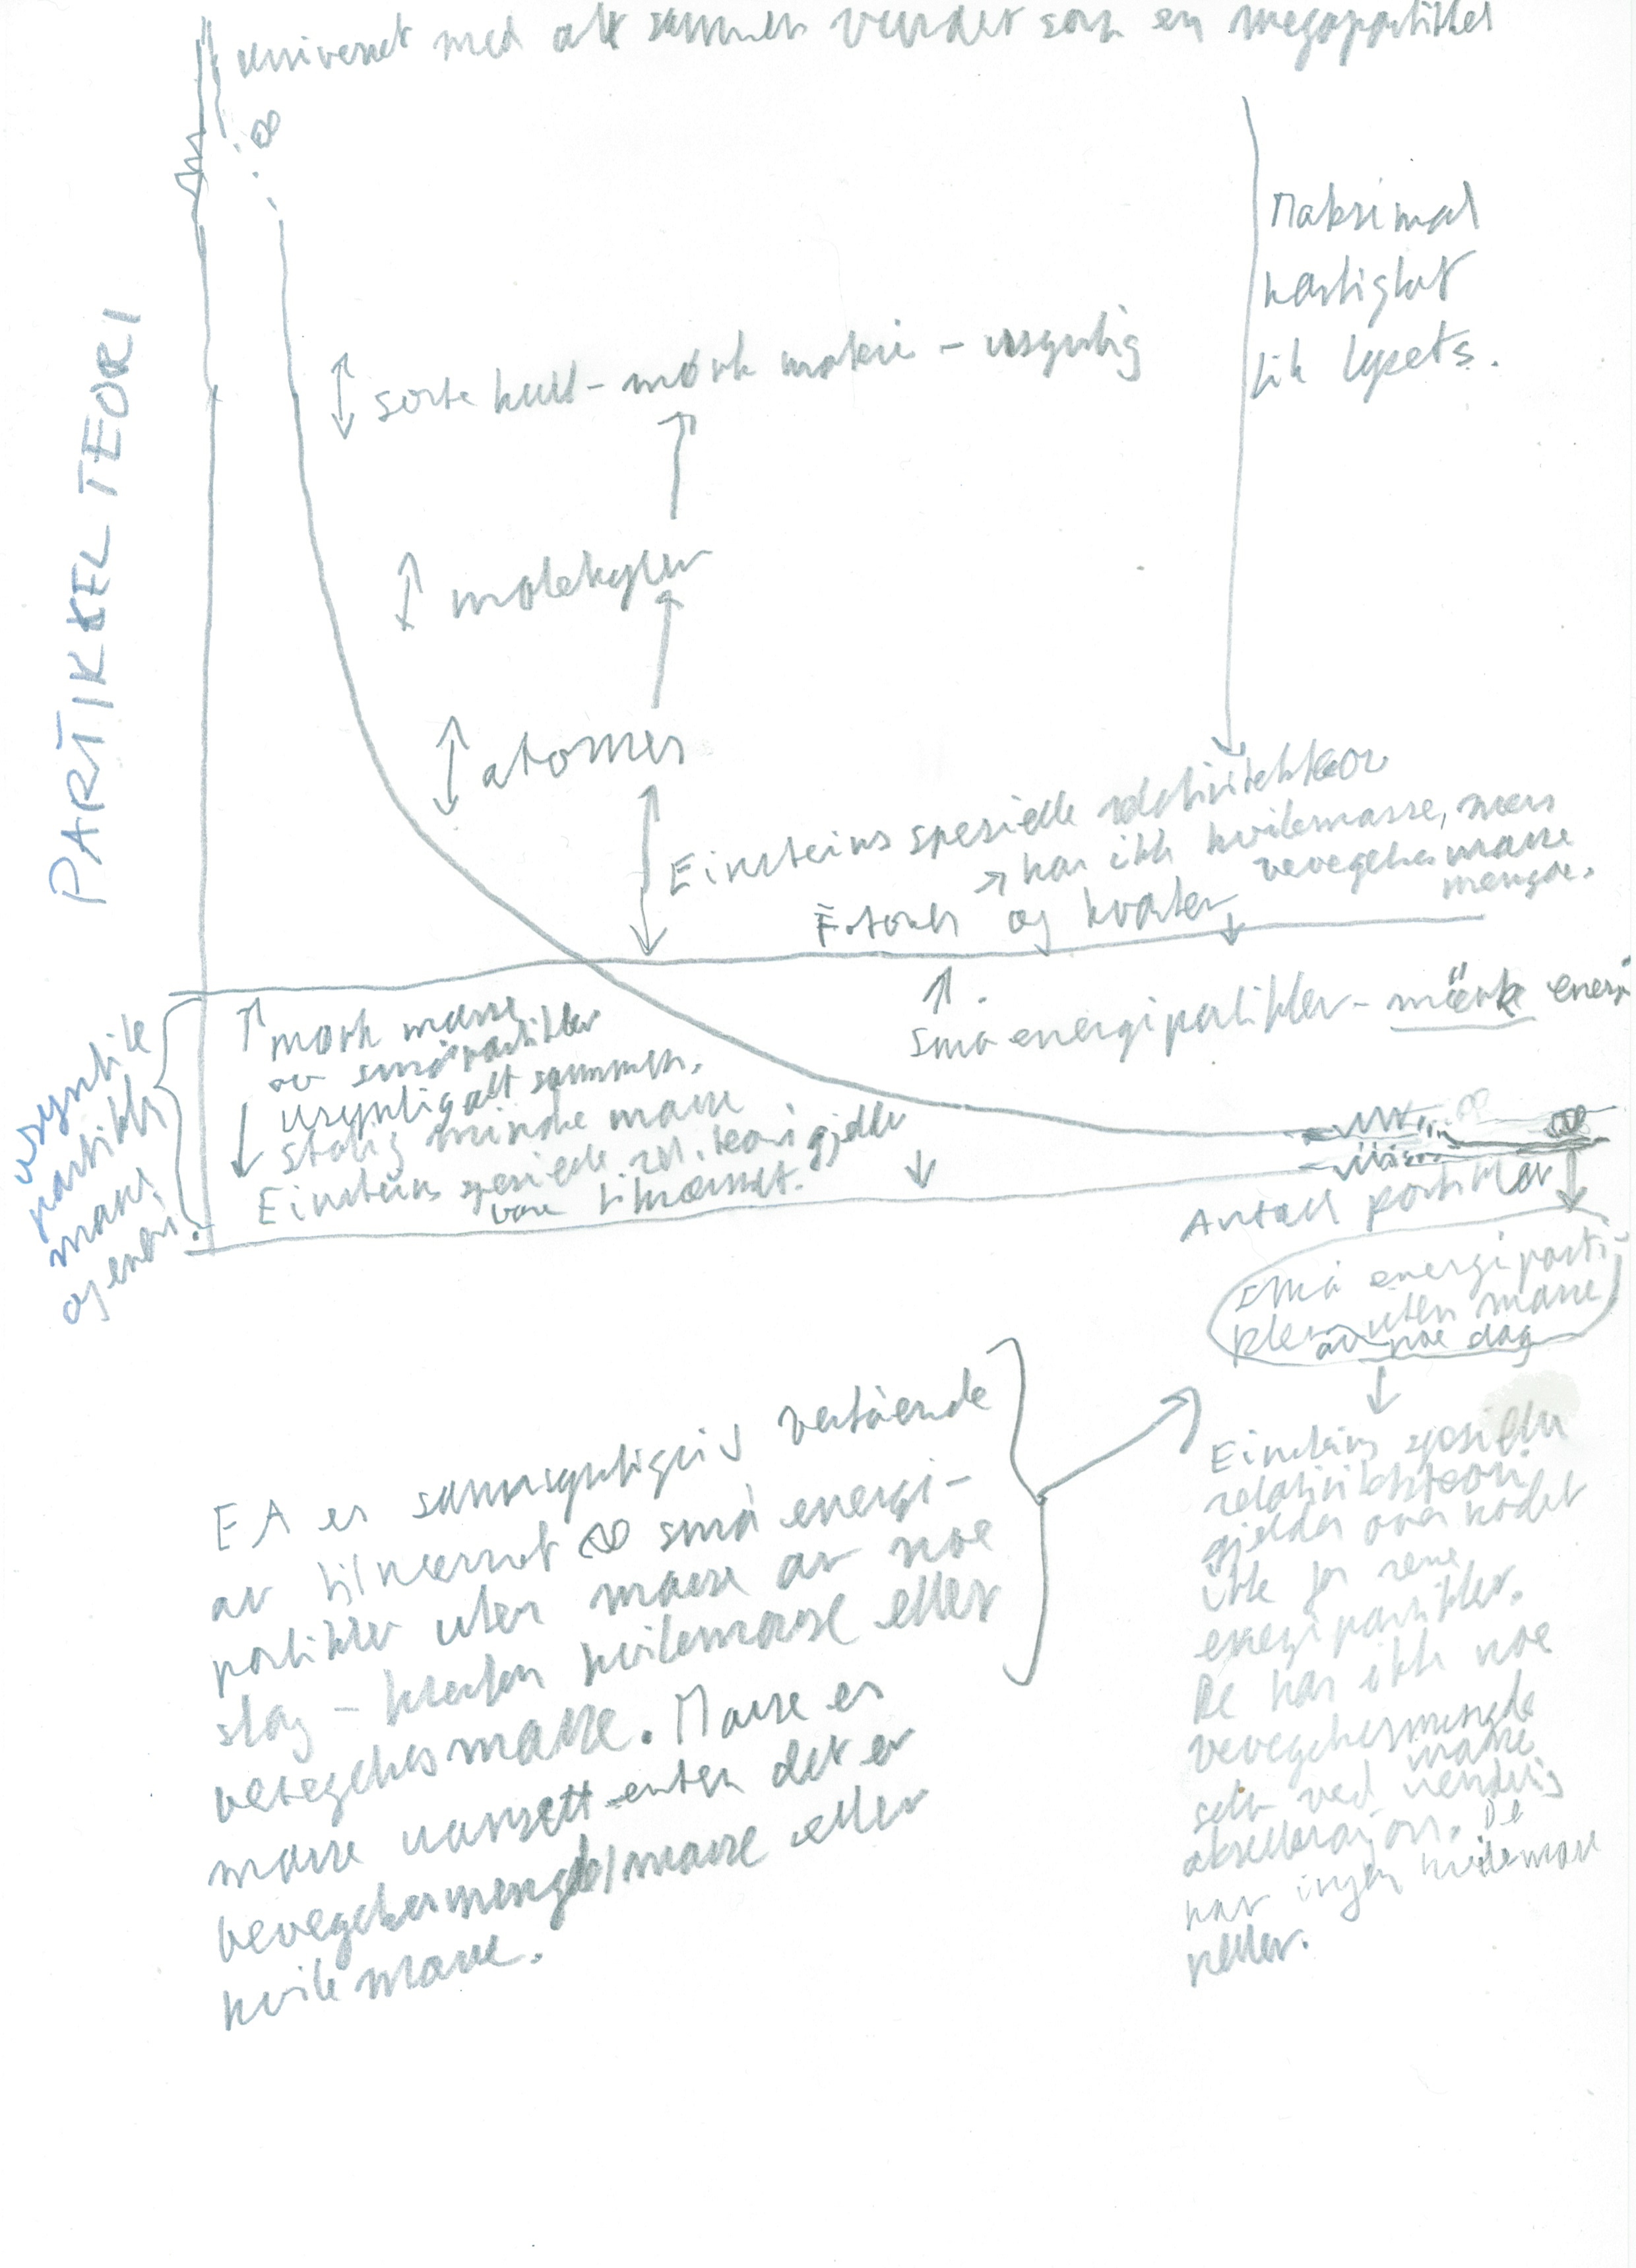 universet med alt sammen vurdert som en megapartikkel
∞
Maksimal
hastighet
lik lysets.
PARTIKKEL TEORI
sorte hull - mørk materie - usynlig
molekyler
atomer
Einsteins spesielle relativitetsteori
har ikke hvilemasse, men
bevegelsesmasse
mengde.
Fotoner og kvarker
små energipartikler - mørk energi
mørk masse
av småpartikler
usynlig alt sammen.
stadig mindre masse
Einsteins spesielle rel. teori gjelder
bare tilnærmet.
usynlige
partikler
masse
og energi.
∞ ∞
Antall partikler
små energiparti-
kler uten masse
av noe slag
EA er sannsynligvis bestående
av tilnærmet ∞ små energi-
partikler uten masse av noe
slag - hverken hvilemasse eller
bevegelsesmasse. Masse er
masse uansett enten det er
bevegelsesmengde/masse eller
hvilemasse.
Einsteins spesielle
relativitetsteori
gjelder over hodet
ikke for rene
energipartikler.
De har ikke noe
bevegelsesmengde
masse
selv ved uendelig
akselerasjon. De
har ingen hvilemasse
heller.